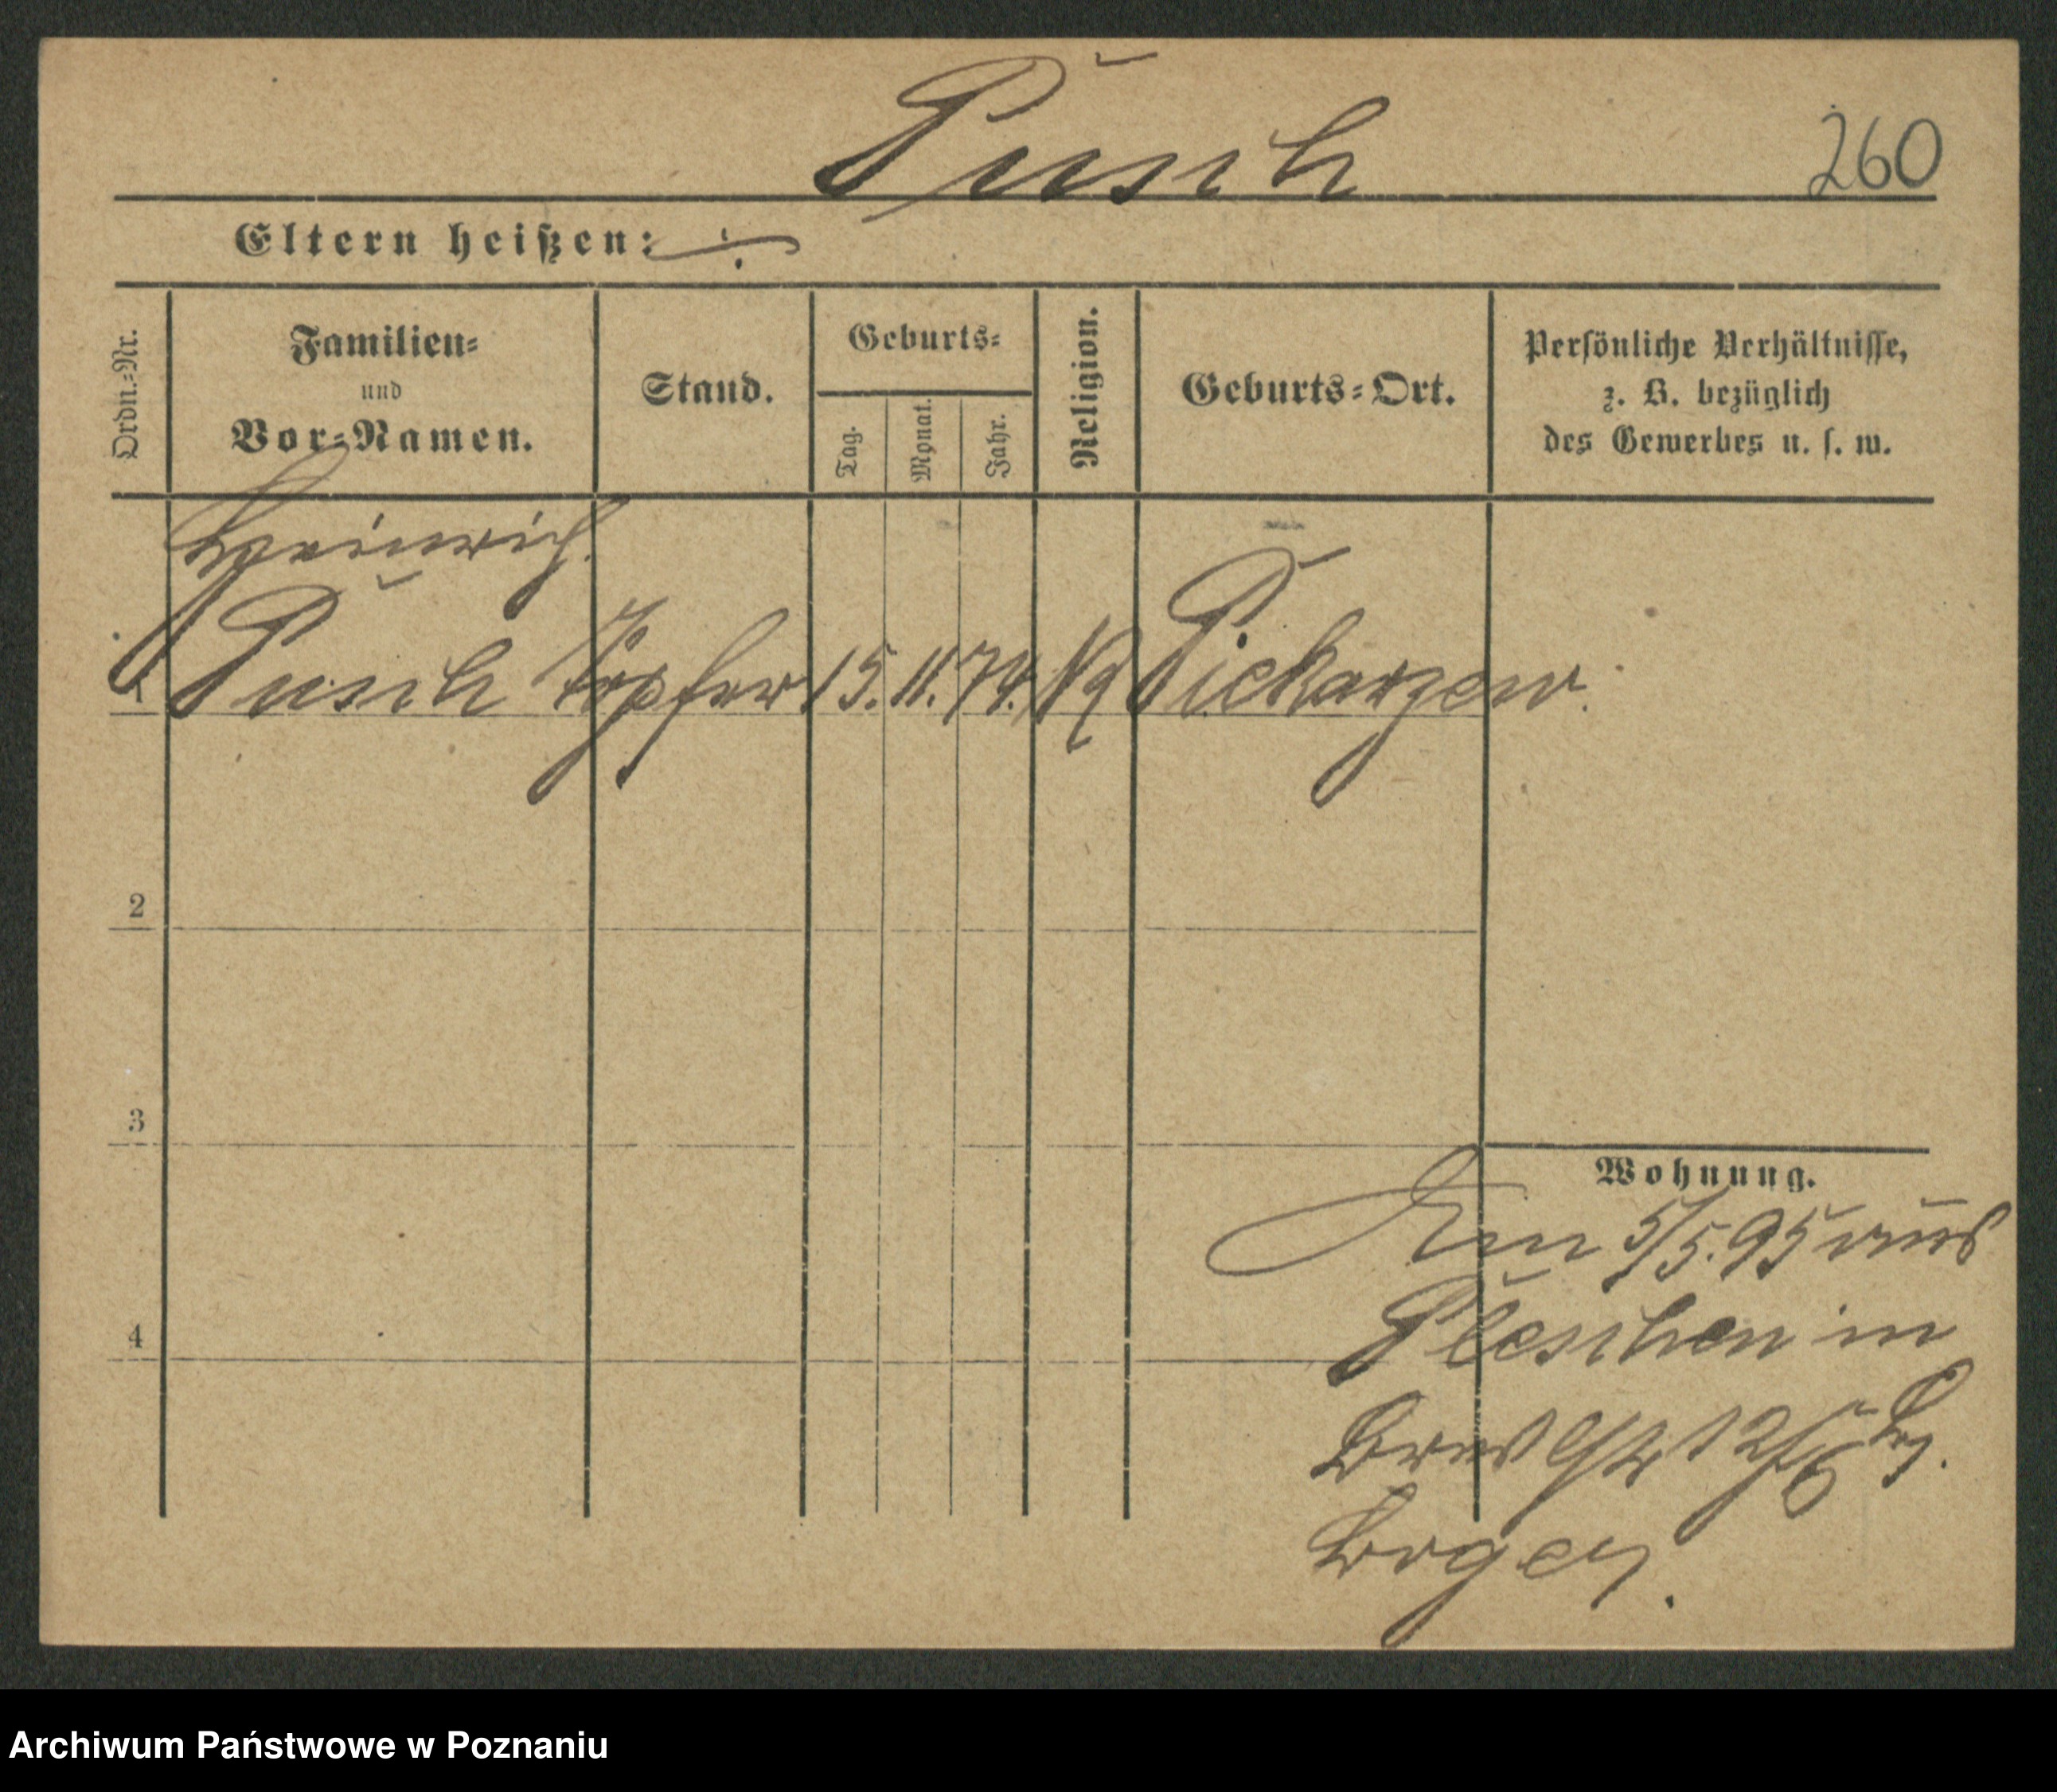 Pusch
260
Eltern heißen: ./.
Ordn.-Nr.
Familien-
und
Vor-Namen.
Stand.
Geburts-
Tag.
Monat.
Jahr.
Religion.
Geburts-Ort.
Persönliche Verhältnisse,
z. B. bezüglich
des Gewerbes u. s. w.
Heinrich.
1 Pusch Töpfer 15. 11. 74. Piekarzew.
2
3
4
Wohnung.
Am 5/5. 95 aus
Pleschen in
12/6
Archiwum Państwowe w Poznaniu